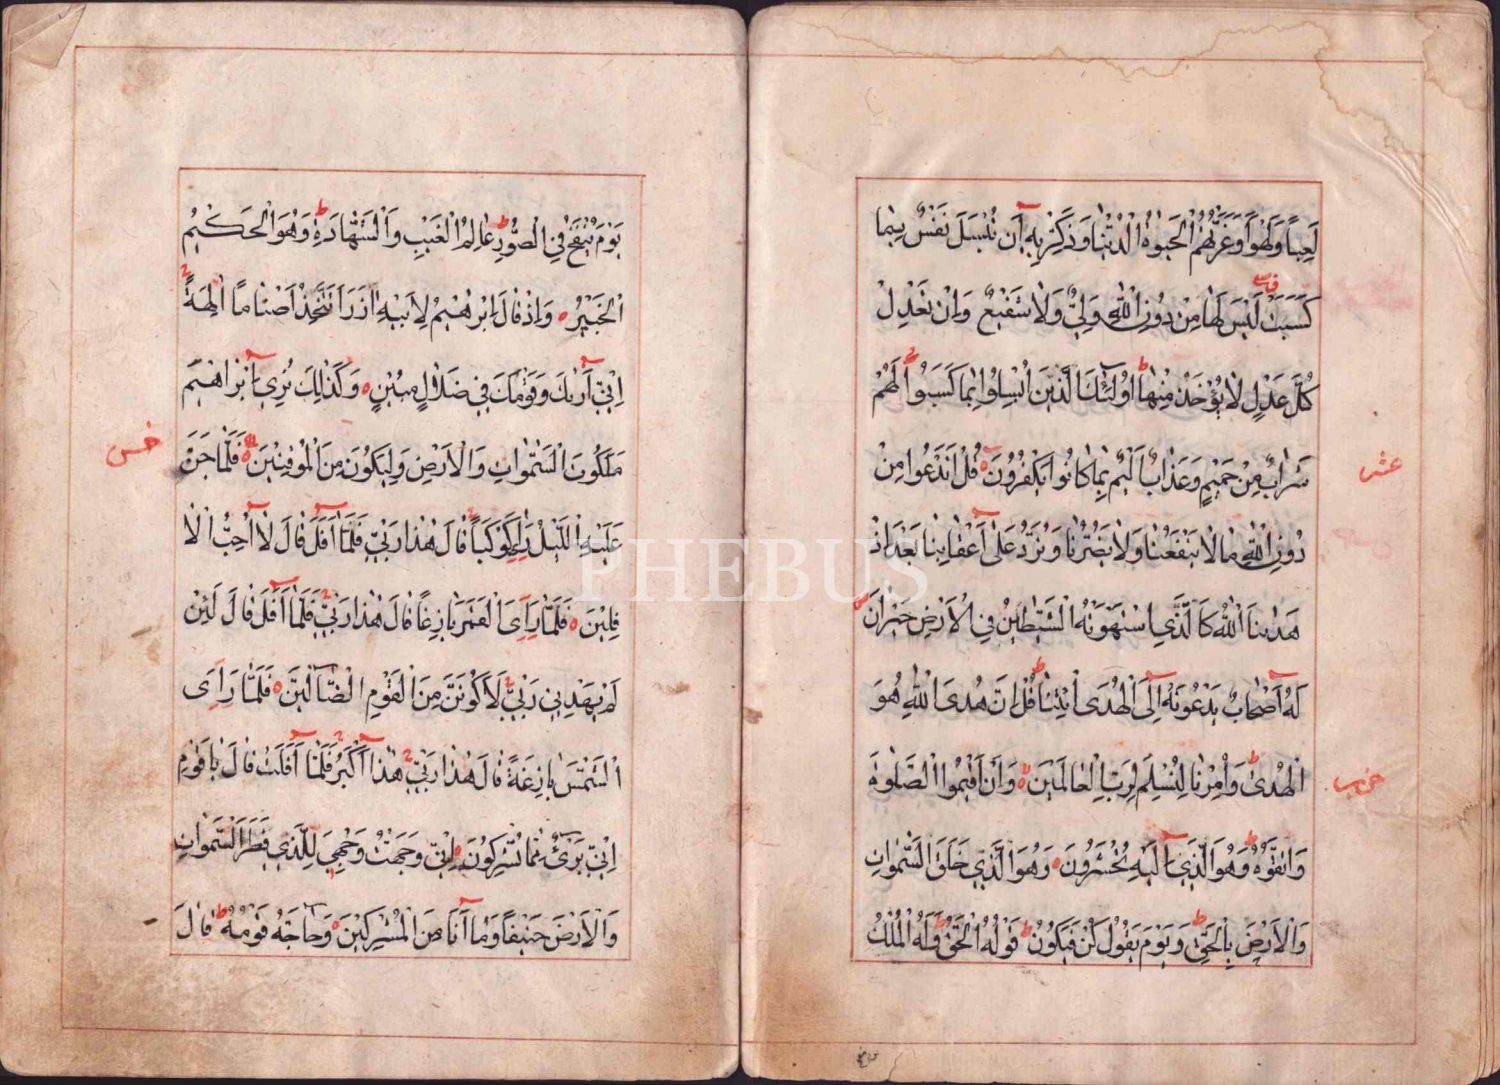 لَعِباً وَلَهْواً وَغَرَّتْهُمُ الْحَيٰوةُ الدُّنْيَا وَذَكِّرْ بِهٖ أَنْ تُبْسَلَ نَفْسٌ بِمَا
كَسَبَتْ لَيْسَ لَهَا مِنْ دُونِ اللّٰهِ وَلِيٌّ وَلَا شَفِيعٌ وَاِنْ تَعْدِلْ
كُلَّ عَدْلٍ لَا يُؤْخَذْ مِنْهَا اُولٰئِكَ الَّذِينَ اُبْسِلُوا بِمَا كَسَبُوا لَهُمْ
شَرَابٌ مِنْ حَمِيمٍ وَعَذَابٌ اَلِيمٌ بِمَا كَانُوا يَكْفُرُونَ قُلْ اَنَدْعُوا مِنْ
عشر
دُونِ اللّٰهِ مَا لَا يَنْفَعُنَا وَلَا يَضُرُّنَا وَنُرَدُّ عَلٰى اَعْقَابِنَا بَعْدَ اِذْ
هَدٰينَا اللّٰهُ كَالَّذِي اسْتَهْوَتْهُ الشَّيٰطِينُ فِي الْاَرْضِ حَيْرَانَ
لَهُ اَصْحَابٌ يَدْعُونَهُ اِلَى الْهُدَى ائْتِنَا قُلْ اِنَّ هُدَى اللّٰهِ هُوَ
الْهُدٰى وَاُمِرْنَا لِنُسْلِمَ لِرَبِّ الْعَالَمِينَ وَاَنْ اَقِيمُوا الصَّلٰوةَ
حزب
وَاتَّقُوهُ وَهُوَ الَّذِي اِلَيْهِ تُحْشَرُونَ وَهُوَ الَّذِي خَلَقَ السَّمٰوَاتِ
وَالْاَرْضَ بِالْحَقِّ وَيَوْمَ يَقُولُ كُنْ فَيَكُونُ قَوْلُهُ الْحَقُّ وَلَهُ الْمُلْكُ
يَوْمَ يُنْفَخُ فِي الصُّورِ عَالِمُ الْغَيْبِ وَالشَّهَادَةِ وَهُوَ الْحَكِيمُ
الْخَبِيرُ وَاِذْ قَالَ اِبْرٰهِيمُ لِاَبِيهِ اٰزَرَ اَتَتَّخِذُ اَصْنَامًا اٰلِهَةً
اِنِّي اَرٰيكَ وَقَوْمَكَ فِي ضَلَالٍ مُبِينٍ وَكَذٰلِكَ نُرِي اِبْرَاهِيمَ
مَلَكُوتَ السَّمٰوَاتِ وَالْاَرْضِ وَلِيَكُونَ مِنَ الْمُوقِنِينَ فَلَمَّا جَنَّ
خمس
عَلَيْهِ اللَّيْلُ رَاٰ كَوْكَبًا قَالَ هٰذَا رَبِّي فَلَمَّا اَفَلَ قَالَ لَا اُحِبُّ الْاٰ
فِلِينَ فَلَمَّا رَاَى الْقَمَرَ بَازِغًا قَالَ هٰذَا رَبِّي فَلَمَّا اَفَلَ قَالَ لَئِنْ
لَمْ يَهْدِنِي رَبِّي لَاَكُونَنَّ مِنَ الْقَوْمِ الضَّالِّينَ فَلَمَّا رَاَى
الشَّمْسَ بَازِغَةً قَالَ هٰذَا رَبِّي هٰذَا اَكْبَرُ فَلَمَّا اَفَلَتْ قَالَ يَا قَوْمِ
اِنِّي بَرِئٌ مِمَّا تُشْرِكُونَ اِنِّي وَجَّهْتُ وَجْهِيَ لِلَّذِي فَطَرَ السَّمٰوَاتِ
وَالْاَرْضَ حَنِيفًا وَمَا اَنَا مِنَ الْمُشْرِكِينَ وَحَاجَّهُ قَوْمُهُ قَالَ
PHEBUS